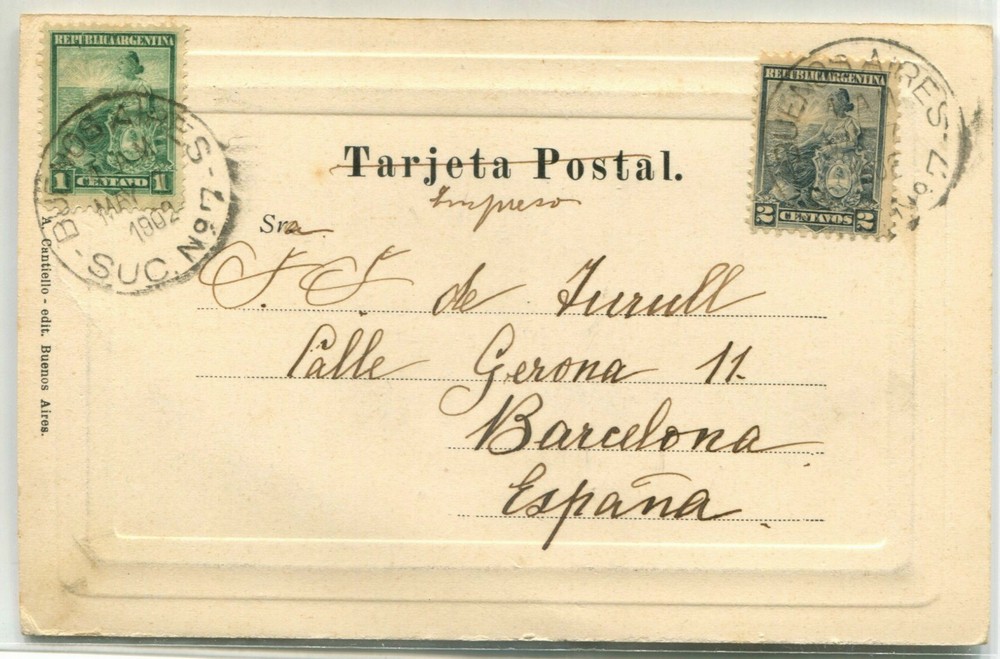 REPUBLICA ARGENTINA
1 CENTAVO 1
BUENOS AIRES
MAY
1902
SUC. Nº 7
REPUBLICA ARGENTINA
2 CENTAVOS 2
BUENOS AIRES
Tarjeta Postal.
Impreso
Sra
J. J. de Turull
Calle Gerona 11.
Barcelona
España
A. Cantiello - edit. Buenos Aires.